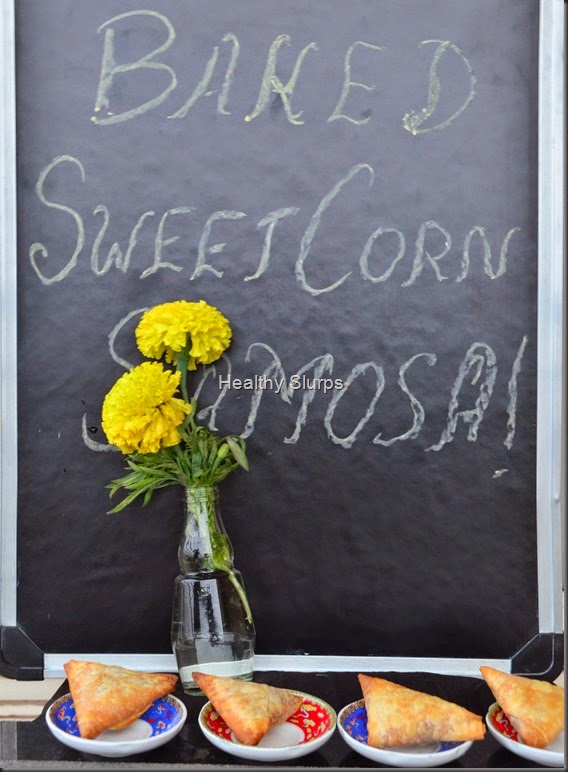 BAKED
SWEET CORN
SAMOSA!
Healthy Slurps